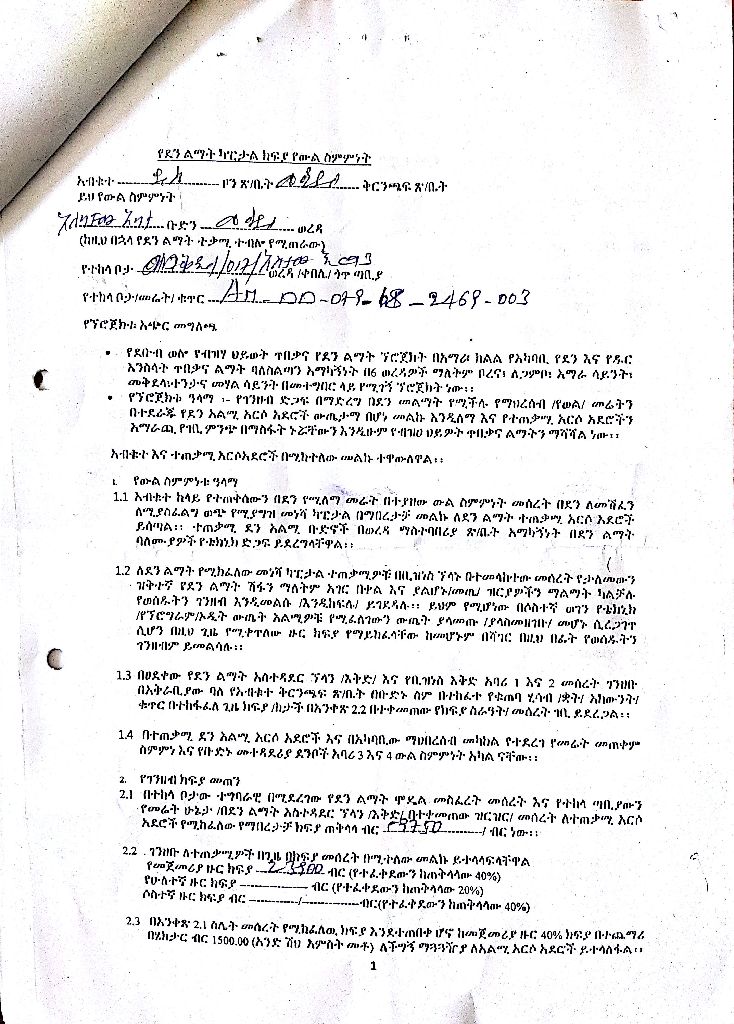 የደን ልማት ካፒታል ክፍያ የውል ስምምነት
አብቁተ ............ ቦን ጽ/ቤት ............ ቅርንጫፍ ጽ/ቤት
ይህ የውል ስምምነት
............ ቡድን ............ ወረዳ
(ከዚህ በኋላ የደን ልማት ተቃሚ ተብሎ የሚጠራው)
የተከላ ቦታ ............ ወረዳ /ቀበሌ/ ጎጥ ጣቢያ
የተከላ ቦታ/መሬት/ ቁጥር AM - DD - 079 - 68 - 2469 - 003
የፕሮጀክቱ አጭር መግለጫ
• የደቡብ ወሎ የብዝሃ ህይወት ጥበቃና የደን ልማት ፕሮጀክት በአማራ ክልል የአካባቢ የደን እና የዱር
እንስሳት ጥበቃና ልማት ባለስልጣን አማካኝነት በ6 ወረዳዎች ማለትም ቦረና፣ ለጋምቦ፣ አማራ ሳይንት፣
መቅደላ፣ተንታና መሃል ሳይንት በመተግበር ላይ የሚገኝ ፕሮጀክት ነው፡፡
• የፕሮጀክቱ ዓላማ ፡- የገንዘብ ድጋፍ በማድረግ በደን መልማት የሚችሉ የማህበረሰብ /የወል/ መሬትን
በተደራጁ የደን አልሚ አርሶ አደሮች ውጤታማ በሆነ መልኩ እንዲለማ እና የተጠቃሚ አርሶ አደሮችን
አማራጪ የገቢ ምንጭ በማስፋት ኑሯቸውን እንዲሁም የብዝሀ ህይዎት ጥበቃና ልማትን ማሻሻል ነው፡፡
አብቁተ እና ተጠቃሚ አርሶአደሮች በሚከተለው መልኩ ተዋውለዋል፡፡
1. የውል ስምምነቱ ዓላማ
1.1 አብቁተ ከላይ የተጠቀሰውን በደን የሚለማ መሬት በተያዘው ውል ስምምነት መሰረት በደን ለመሸፈን
ለሚያስፈልግ ወጭ የሚያግዝ መነሻ ካፒታል በማበረታቻ መልኩ ለደን ልማት ተጠቃሚ አርሶ አደሮች
ይሰጣል፡፡ ተጠቃሚ ደን አልሚ ቡድኖች በወረዳ ማስተባበሪያ ጽ/ቤት አማካኝነት በደን ልማት
ባለሙያዎች የቴክኒክ ድጋፍ ይደረግላቸዋል፡፡
1.2 ለደን ልማት የሚከፈለው መነሻ ካፒታል ተጠቃሚዎቹ በቢዝነስ ፕላኑ በተመላከተው መሰረት የታለመውን
ዝቅተኛ የደን ልማት ሽፋን ማለትም አገር በቀል እና ያልሆኑ/መጤ/ ዝርያዎችን ማልማት ካልቻሉ
የወሰዱትን ገንዘብ እንዲመልሱ /እንዲከፍሉ/ ይገደዳሉ፡፡ ይህም የሚሆነው በሶስተኛ ወገን የቴክኒክ
/የፕሮግራም/ኦዲት ውጤት አልሚዎቹ የሚፈለገውን ውጤት ያላመጡ /ያላስመዘገቡ/ መሆኑ ሲረጋገጥ
ሲሆን በዚህ ጊዜ የሚቀጥለው ዙር ክፍያ የማይከፈላቸው ከመሆኑም በሻገር በዚህ በፊት የወሰዱትን
ገንዘብም ይመልሳሉ፡፡
1.3 በፀደቀው የደን ልማት አስተዳደር ፕላን /እቅድ/ እና የቢዝነስ እቅድ አባሪ 1 እና 2 መሰረት ገንዘቡ
በአቅራቢያው ባለ የአብቁተ ቅርንጫፍ ጽ/ቤት በቡድኑ ስም በተከፈተ የቁጠባ ሂሳብ /ቋት/ አካውንት/
ቁጥር በተከፋፈለ ጊዜ ክፍያ /ከታች በአንቀጽ 2.2 በተቀመጠው የክፍያ ስርዓት/ መሰረት ገቢ ይደረጋል፡፡
1.4 በተጠቃሚ ደን አልሚ አርሶ አደሮች እና በአካባቢው ማህበረሰብ መካከል የተደረገ የመሬት መጠቀም
ስምምነ እና የቡድኑ መተዳደሪያ ደንቦች አባሪ 3 እና 4 ውል ስምምነት አካል ናቸው፡፡
2. የገንዘብ ክፍያ መጠን
2.1 በተከላ ቦታው ተግባራዊ በሚደረገው የደን ልማት ሞዴል መስፈረት መሰረት እና የተከላ ጣቢያውን
የመሬት ሁኔታ /በደን ልማት አስተዳደር ፕላን /እቅድ/ በተቀመጠው ዝርዝር/ መሰረት ለተጠቃሚ አርሶ
አደሮች የሚከፈለው የማበረታቻ ክፍያ ጠቅላላ ብር 59750 ............/ ብር ነው፡፡
2.2 ገንዘቡ ለተጠቃሚዎች በጊዜ በክፍያ መሰረት በሚተለው መልኩ ይተላላፍላቸዋል
የመጀመሪያ ዙር ክፍያ 23900 ብር (የተፈቀደውን ከጠቅላላው 40%)
የሁለተኛ ዙር ክፍያ --------------- ብር (የተፈቀደውን ከጠቅላላው 20%)
ሶስተኛ ዙር ክፍያ ብር -----------/--------------ብር(የተፈቀደውን ከጠቅላላው 40%)
2.3 በአንቀጽ 2.1 ስሌት መሰረት የሚከፈለው ክፍያ እንደተጠበቀ ሆኖ ከመጀመሪያ ዙር 40% ክፍያ በተጨማሪ
በሄክታር ብር 1500.00 (አንድ ሽህ አምስት መቶ) ለችግኝ ማጓጓዣያ ለአልሚ አርሶ አደሮች ይተላለፋል፡፡
1